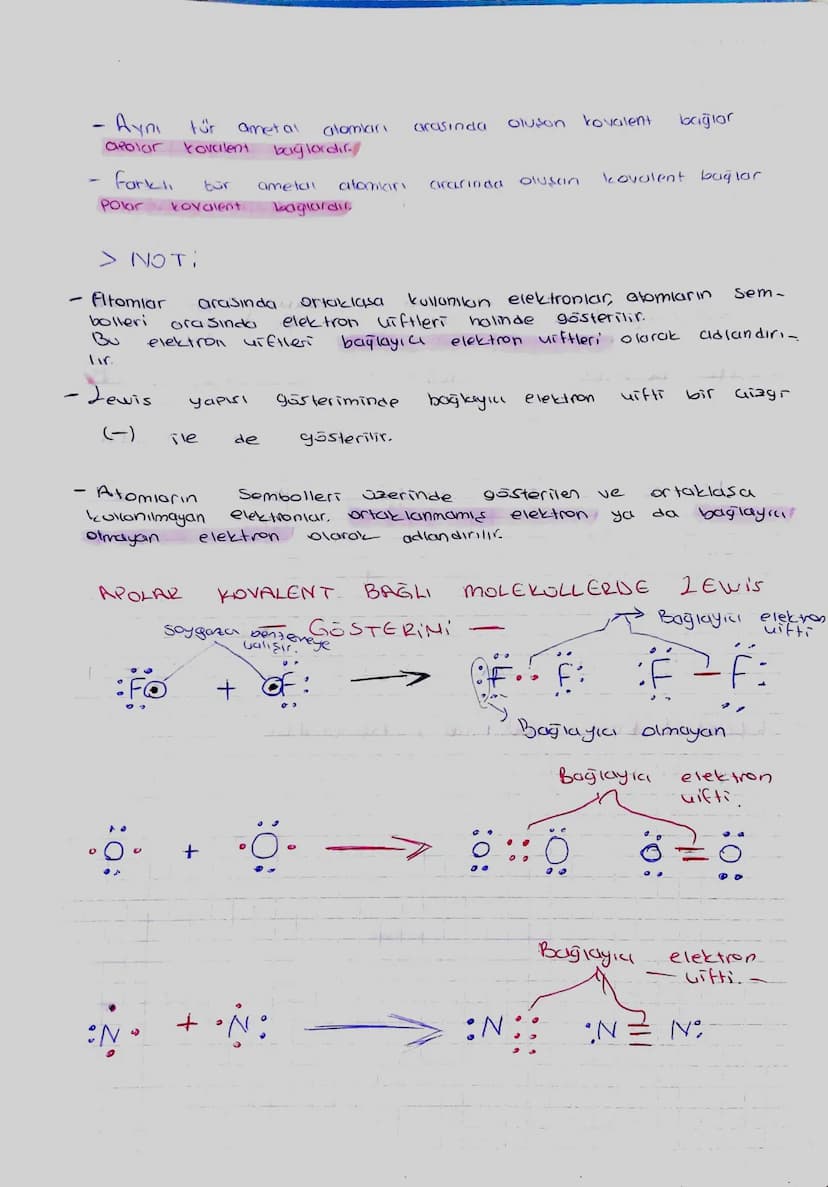 - Aynı tür ametal atomları arasında oluşan kovalent bağlar
apolar kovalent bağlardır.
- Farklı tür ametal atomları arasında oluşan kovalent bağlar
Polar kovalent bağlardır.
> NOT:
- Atomlar arasında ortaklaşa kullanılan elektronlar, atomların sem-
bolleri arasında elektron çiftleri halinde gösterilir.
Bu elektron çiftleri bağlayıcı elektron çiftleri olarak adlandırı-
lır.
- Lewis yapısı gösteriminde bağlayıcı elektron çifti bir çizgi
(-) ile de gösterilir.
- Atomların Sembolleri üzerinde gösterilen ve ortaklaşa
kullanılmayan elektronlar, ortaklanmamış elektron ya da bağlayıcı
olmayan elektron olarak adlandırılır.
APOLAR KOVALENT BAĞLI MOLEKÜLLERDE LEWİS
— GÖSTERİMİ —
Soygaza benzemeye
çalışır.
Bağlayıcı elektron
çifti
:F• + •F: → :F••F: :F-F:
Bağlayıcı olmayan
Bağlayıcı elektron
çifti.
•O• + •O• → O::O O=O
Bağlayıcı elektron
— çifti. —
:N• + •N: → :N⋮⋮ :N≡N: